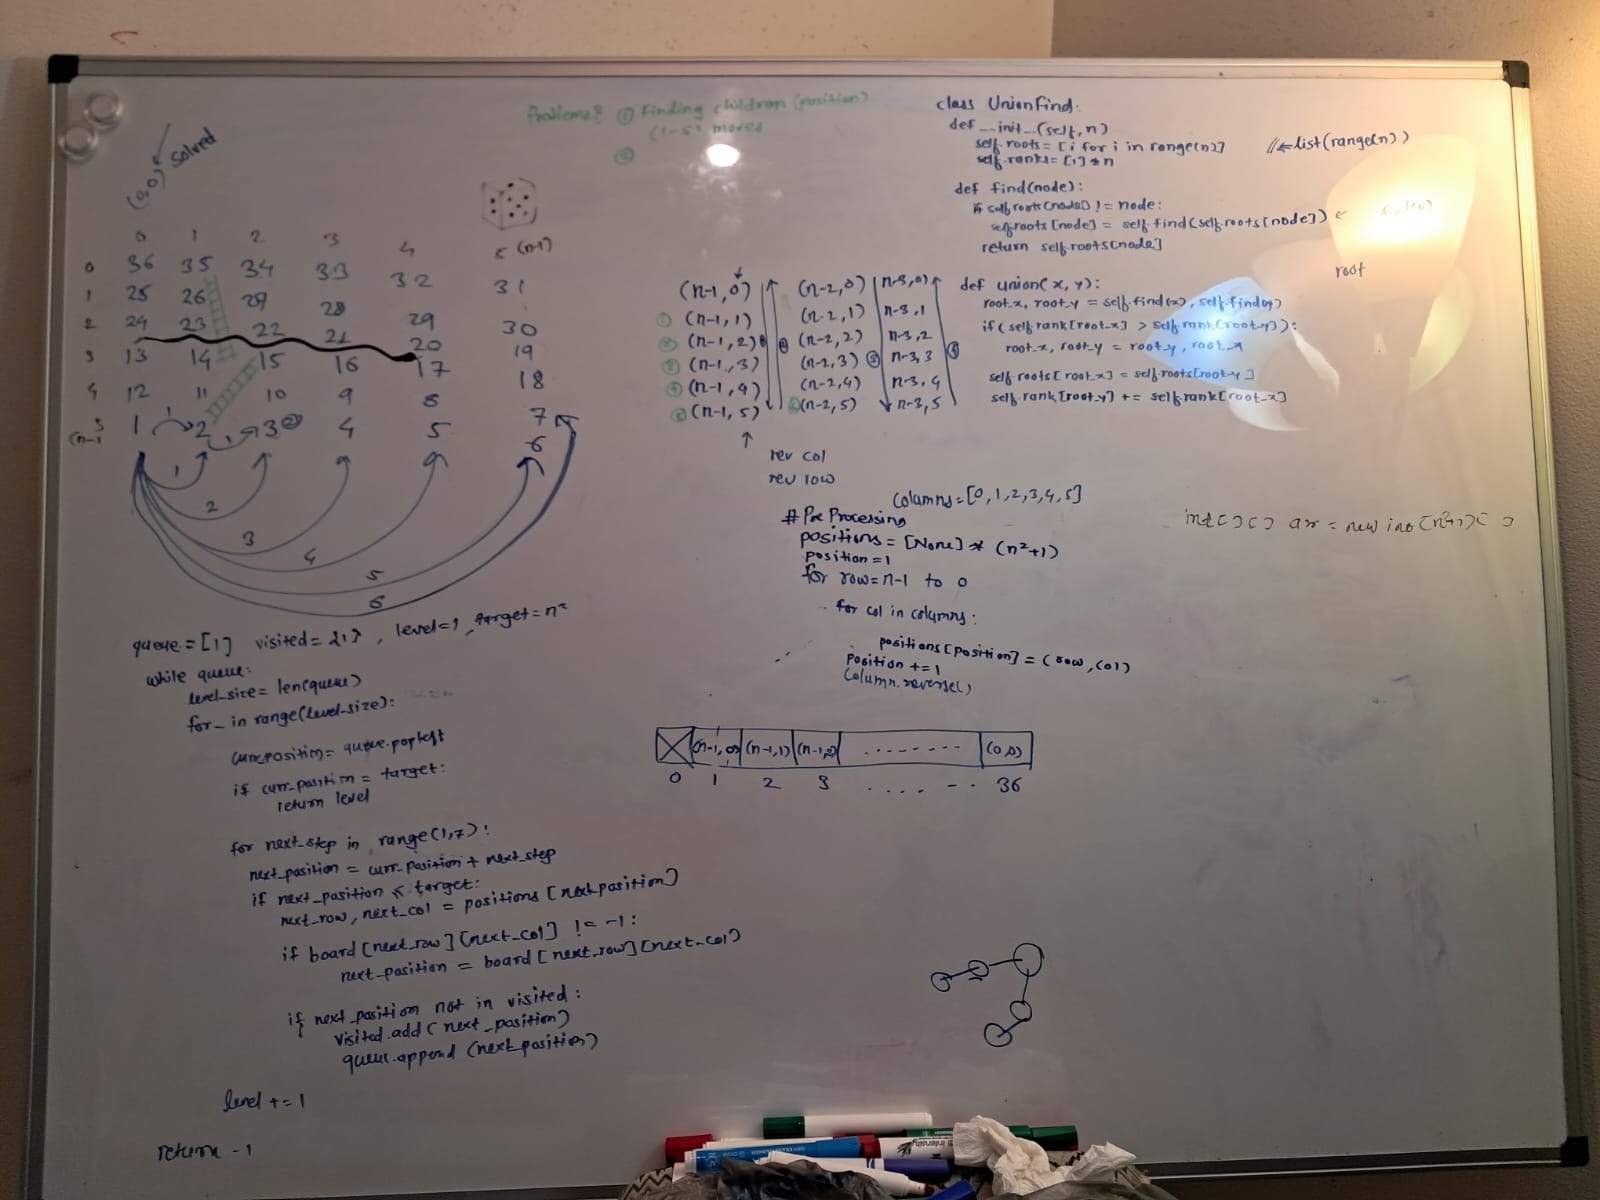 Problems? ① Finding children (position)
(1-6) moves
②
(0,0) solved
0 1 2 3 4 5 (n-1)
0 36 35 34 33 32 31
1 25 26 27 28 29 30
2 24 23 22 21 20 19
3 13 14 15 16 17 18
4 12 11 10 9 8 7
5 (n-1 1 2 3 4 5 6
1 1
1
2
3
4
5
6
queue = [1] visited = {1}, level=1, target = n²
while queue:
level_size = len(queue)
for _ in range(level_size):
curr_position = queue.popleft
if curr_position = target:
return level
for next_step in range(1,7):
next_position = curr_position + next_step
if next_position ≤ target:
next_row, next_col = positions [next position]
if board [next_row] [next_col] != -1:
next_position = board [next_row] [next_col]
if next_position not in visited:
visited.add (next_position)
queue.append (next position)
level += 1
return -1
(n-1, 0) (n-2, 0) n-3, 0)
① (n-1, 1) (n-2, 1) n-3, 1
② (n-1, 2) (n-2, 2) n-3, 2
③ (n-1, 3) (n-2, 3) n-3, 3
④ (n-1, 4) (n-2, 4) n-3, 4
⑤ (n-1, 5) (n-2, 5) n-3, 5
rev col
rev row
columns = [0, 1, 2, 3, 4, 5]
# Pre Processing
positions = [None] * (n²+1)
position = 1
for row = n-1 to 0
for col in columns:
positions [position] = (row, col)
Position += 1
Column.reverse()
(n-1, 0) (n-1, 1) (n-1, 2) ........ (0,0)
0 1 2 3 .... -- . 36
class UnionFind:
def __init__(self, n)
self.roots = [i for i in range(n)] //← list(range(n))
self.ranks = [1] * n
def find(node):
if self.roots[node] != node:
self.roots [node] = self.find(self.roots [node]) ←
return self.roots[node]
root
def union(x, y):
root_x, root_y = self.find(x), self.find(y)
if (self.rank[root_x] > self.rank[root_y]):
root_x, root_y = root_y, root_x
self.roots [root_x] = self.roots[root_y]
self.rank [root_y] += self.rank[root_x]
int [] [] arr = new int [n²+1] [ ]